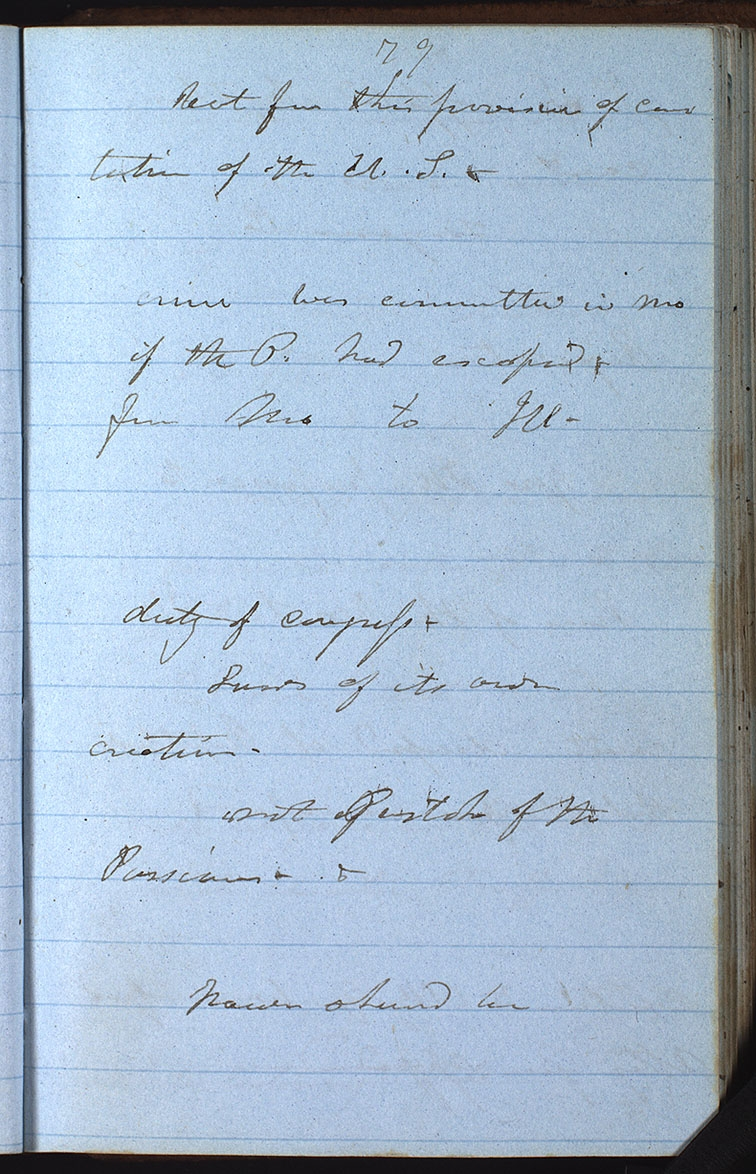 79
But for this provision of cons
titution of the U.S. &
crime was committed in Mo
if the P. had escaped &
from Mo to Ill-
duty of congress &
Laws of its own
creation-
not of the
Passions- &
Power should be